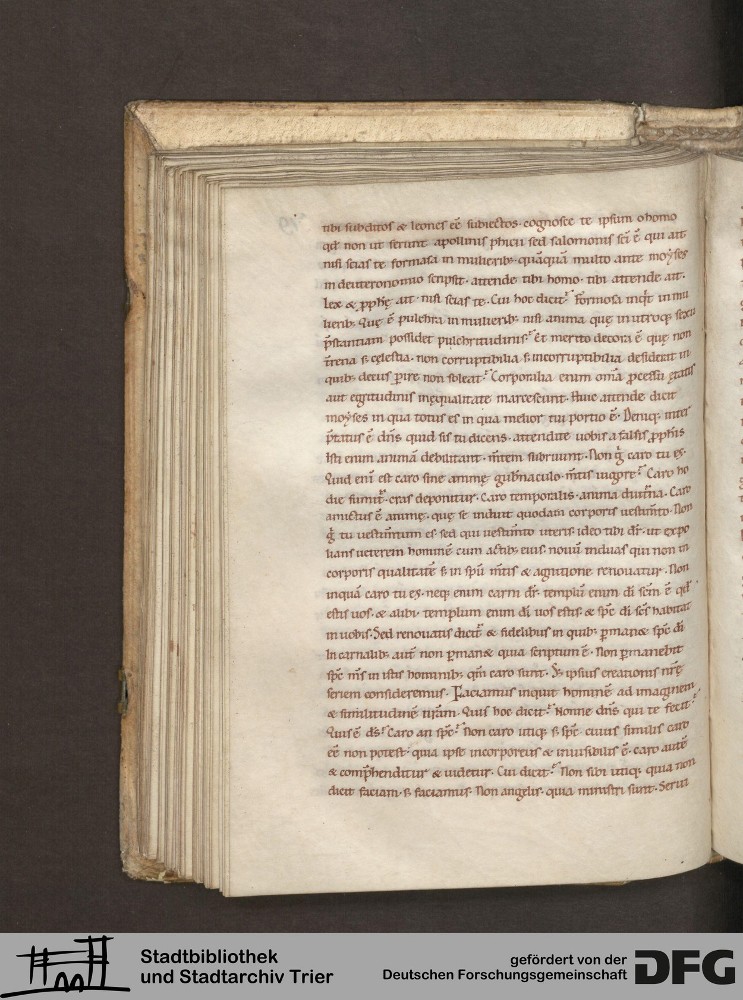 tibi subditos & leones eē subiectos. cognosce te ipsum o homo
qđ non ut ferunt apollinis phicii sed salomonis sc̄i ē qui ait
nisi scias te formosa in mulierib; quāquā multo ante moyses
in deuteronomio scripsit. attende tibi homo. tibi attende ait.
lex & ꝓph& ait. nisi scias te. Cui hoc dicit? formosa inq̇t in mu
lierib; Quę ē pulchra in mulierib; nisi anima quę in utroq; sexu
p̄stantiam possidet pulchritudinis? Et merito decora ē quę non
t̄rena s; cęlestia. non corruptibilia s; incorruptibilia desiderat in
quib; decus ꝑire non soleat? Corporalia enim om̄a ꝓcessu ętatis
aut egritudinis inęqualitate marcescunt. Huic attende dicit
moyses in qua totus es in qua melior tui portio ē. Deniq; inter
p̄tatus ē dn̄s quid sis tu dicens. attendite uobis a falsis ꝓphis
Isti enim animā debilitant. m̄tem subruunt. Non ḡ caro tu es.
Quid eni est caro sine animę gub̄naculo. m̄tis uigore? Caro ho
die sumit᷑. cras deponitur. Caro temporalis. anima diut̄na. Caro
amictus ē animę. quę se induit quodam corporis uestim̄to. Non
ḡ tu uestim̄tum es sed qui uestim̄to uteris. ideo tibi dr̄. ut expo
lians ueterem hominē cum actib; suis. nouū induas qui non in
corporis qualitatē s; in spū m̄tis & agnitione renouatur. Non
inquā caro tu es. neq; enim carni dr̄. templū enim dī sc̄m ē qđ
estis uos. & alibi. templum enim dī uos estis. & spc̄ dī sc̄s habitat
in uobis. Sed renouatis dicit᷑ & fidelibus in quib; ꝑman& spc̄ dī
In carnalib; aut̄ non ꝑman& quia scriptum ē. Non ꝑmanebit
spc̄ m̄s in istis hominib; qm̄ caro sunt. S; ipsius creationis nr̄ę
seriem consideremus. Faciamus inquit hominē ad imaginem
& similitudinē nr̄am. Quis hoc dicit? Nonne dn̄s qui te fecit?
Quis ē d̄s? Caro an spc̄? Non caro utiq; s; spc̄. cuius similis caro
eē non potest. quia ipse incorporeus & inuisibilis ē. caro autē
& comp̄henditur & uidetur. Cui dicit? Non sibi utiq; quia non
dicit faciam. s; faciamus. Non angelis. quia ministri sunt. Serui
Stadtbibliothek
und Stadtarchiv Trier
gefördert von der
Deutschen Forschungsgemeinschaft
DFG